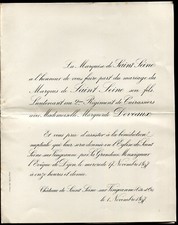 La Marquise de Saint Seine
a l'honneur de vous faire part du mariage du
Marquis de Saint Seine son fils
Lieutenant au Régiment de Cuirassiers
avec Mademoiselle Marguerite Devaux
Et vous prie d'assister à la bénédiction
nuptiale qui leur sera donnée en l'Eglise de Saint
Seine sur Vingeanne par Sa Grandeur Monseigneur
l'Evêque de Dijon le mercredi 17 Novembre
à onze heures et demie.
Château de Saint Seine sur Vingeanne
le 1 Novembre